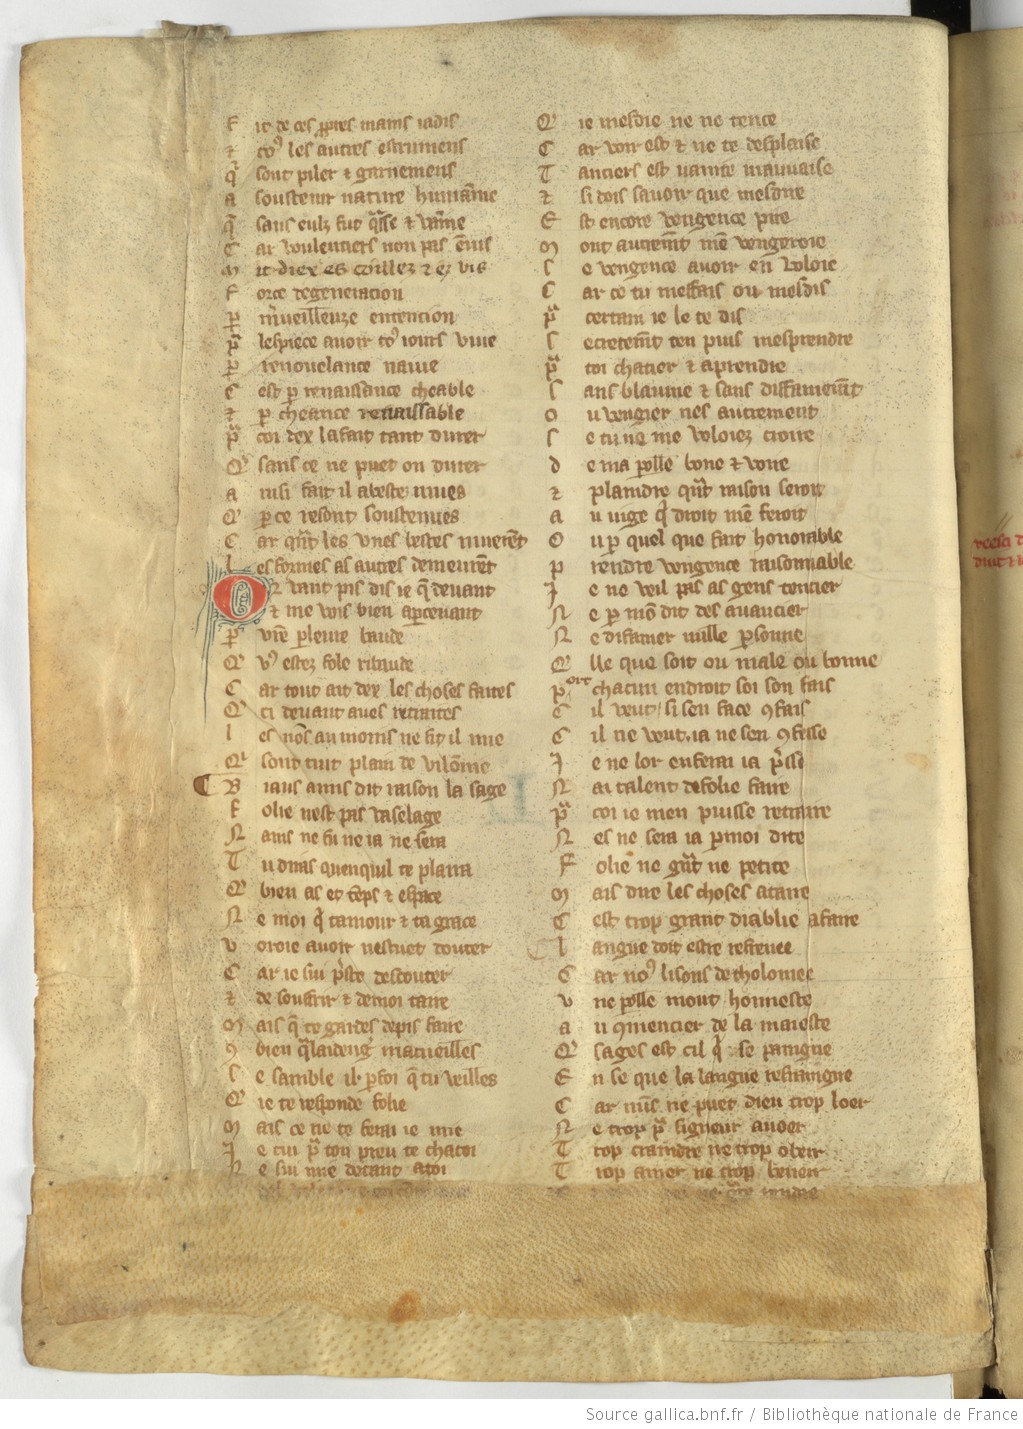 F it de ces ppres mains iadis
⁊ toꝰ les autres estrumens
q̄ sont piler ⁊ garnemens
a soustenir nature humaine
q̄ sans eulz fut q̄sse ⁊ vaine
C ar voulentiers non pas enuis
M it diex es coillez ⁊ es vis
F orce degeneracion
p̲ m̾ueilleuze entencion
pͣ lespiece auoir toꝰ iours viue
p̲ renouelance naiue
C est p̲ renaissance cheable
⁊ p̲ cheance renaissable
pͣ coi dex la fait tant durer
Q̾ sans ce ne puet on durer
a insi fait il a bestez mues
Q̾ p̲ ce resont soustenues
C ar q̄nt les vnes bestes muerent
l es formes as autres demeurent
O r vaut pis dis ie q̄ deuant
⁊ me vois bien ap̲ceuant
p̲ vr̄e p̲leure baude
Q̾ vꝰ estez fole ribaude
C ar tout ait dex les choses faites
Q̾ ci deuant aues retraites
l es nōs au moins ne fit il mie
Q̾ sont tuit plain de vilōnie
B iaus amis dit raison la sage
F olie nest pas vaselage
N ains ne fu ne ia ne sera
T u diras quenquil te plaira
Q̾ bien as et tēps ⁊ espace
N e moi q̾ tamour ⁊ ta grace
v oroie auoir nestuet douter
C ar ie sui p̾ste descouter
⁊ de souffrir ⁊ de moi taire
M ais q̄ te gardes de pis faire
ꝯ bien q̄ laideng̾ macueilles
S e samble il p̲ foi q̄ tu veilles
Q̾ ie te responde folie
M ais ce ne te ferai ie mie
J e cui pͣ ton preu te chatoi
N e sui mie detant a toi
Q̾ ie mesdie ne ne tence
C ar voir est ⁊ ne te desplaise
T anciers est vainte mauuaise
⁊ si dois sauoir que mesdire
E st encore vengence pire
M ont autremt̄ mē vengeroie
S e vengence auoir en voloie
C ar ce tu meffais ou mesdis
pͣ certain ie le te dis
S ecretemt̄ ten puis mesprendre
pͣ toi chatier ⁊ aprendre
S ans blaume ⁊ sans diffamemt̄
o u vengier nes autrement
S e tu ne me voloiez croire
d e ma p̲olle bone ⁊ voire
⁊ plaindre q̄nt raison seroit
a u iuge q̾ droit mē feroit
O u p̲ quel que fait honorable
p rendre vengence raisonnable
J e ne veil pas as gens tencier
N e p̲ mō dit des auancier
N e difamer nulle p̲sonne
Q̾ lle que soit ou male ou bonne
p ort chacun endroit soi son fais
C il veut si sen face ꝯfais
C il ne veut ia ne sen ꝯfesse
J e ne lor en ferai ia p̾sse
N ai talent de folie faire
pͣ coi ie men puisse retraire
N es ne sera ia p̲ moi dite
F olie ne g̾nt ne petite
M ais dire les choses a taire
C est trop grant diablie a faire
l angue doit estre refrenee
C ar noꝰ lisons de tholomee
v ne p̲olle mout honneste
a u ꝯmencier de la maieste
Q̾ sages est cil q̾ se painigne
E n se que la langue restraingne
C ar nus ne puet dieu trop loer
N e trop pͣ signeur auoer
T rop craindre ne trop obeir
T rop amer ne trop beneir